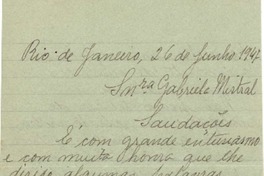 Rio de Janeiro, 26 de Junho, 194
Snra Gabriela Mistral
Saudacões
É com grande entusiasmo
e com muita honra que lhe
dirijo algumas palavras